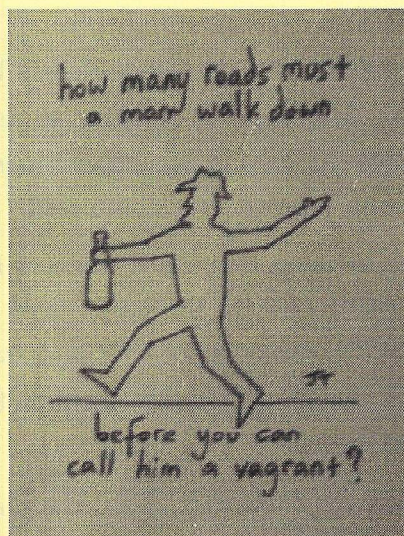 how many roads must
a man walk down
JF
before you can
call him a vagrant?